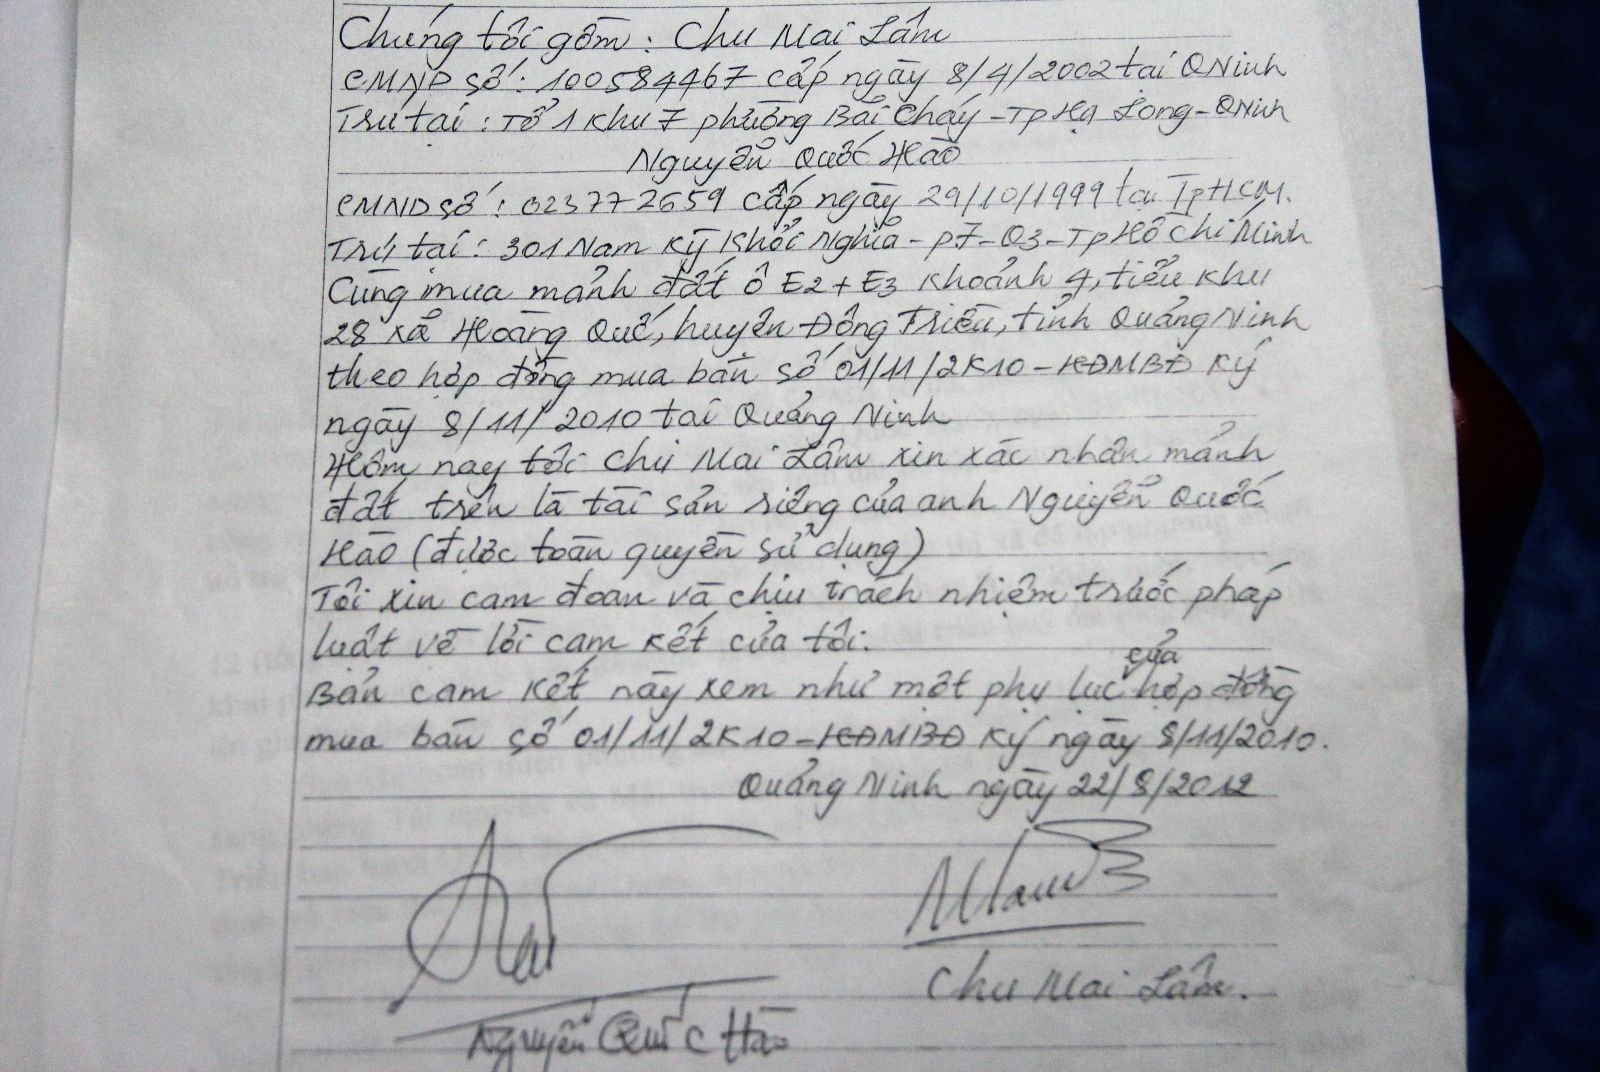 Chúng tôi gồm: Chu Mai Lâm
CMND số: 100584467 cấp ngày 8/4/2002 tại QNinh
Trú tại: Tổ 1 Khu 7 phường Bãi Cháy - Tp Hạ Long - QNinh
Nguyễn Quốc Hào
CMND số: 023772659 cấp ngày 29/10/1999 tại TpHCM.
Trú tại: 301 Nam Kỳ Khởi Nghĩa - P7 - Q3 - Tp Hồ Chí Minh
Cùng mua mảnh đất ô E2 + E3 Khoảnh 4, tiểu khu
28 xã Hoàng Quế, huyện Đông Triều, tỉnh Quảng Ninh
theo hợp đồng mua bán số 01/11/2K10 - HĐMBĐ Ký
ngày 8/11/2010 tại Quảng Ninh
Hôm nay tôi Chu Mai Lâm xin xác nhận mảnh
đất trên là tài sản riêng của anh Nguyễn Quốc
Hào (được toàn quyền sử dụng)
Tôi xin cam đoan và chịu trách nhiệm trước pháp
luật về lời cam kết của tôi.
Bản cam kết này xem như một phụ lục của hợp đồng
mua bán số 01/11/2K10 - HĐMBĐ Ký ngày 8/11/2010.
Quảng Ninh ngày 22/8/2012
Chu Mai Lâm.
Nguyễn Quốc Hào